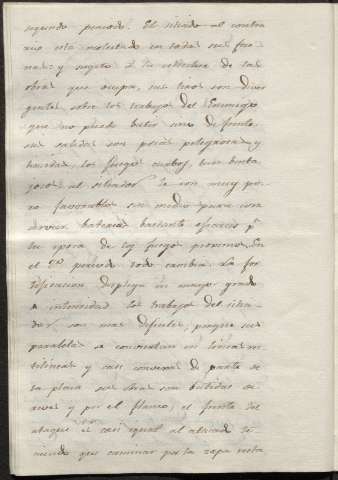 segundo periodo. El sitiado al contra
rio está molestado en todas sus fae
nas: y sugeto á la estrechez de las
obras que ocupa, sus tiros son diver
gentes sobre los trabajos del Enemigo
que no puede batir sino de frente.
sus salidas son pocas peligrosas y
los fuegos curbos, tan benta
josos al sitiador le son muy po
co favorables sin medio para con
servar baterias bastante eficaces pª
la epoca de los fuegos proximos. En
el 2º periodo todo cambia. La for
tificacion desplega su mayor grado
de intensidad los trabajos del sitia
dor son mas dificiles, porque sus
paralelas se convierten en lineas re
tilineas y casi convexas de parte de
la plaza sus obras son batidas de
reves y por el flanco; el frente del
ataque es casi igual al atacado te
niendo que caminar por la zapa meta